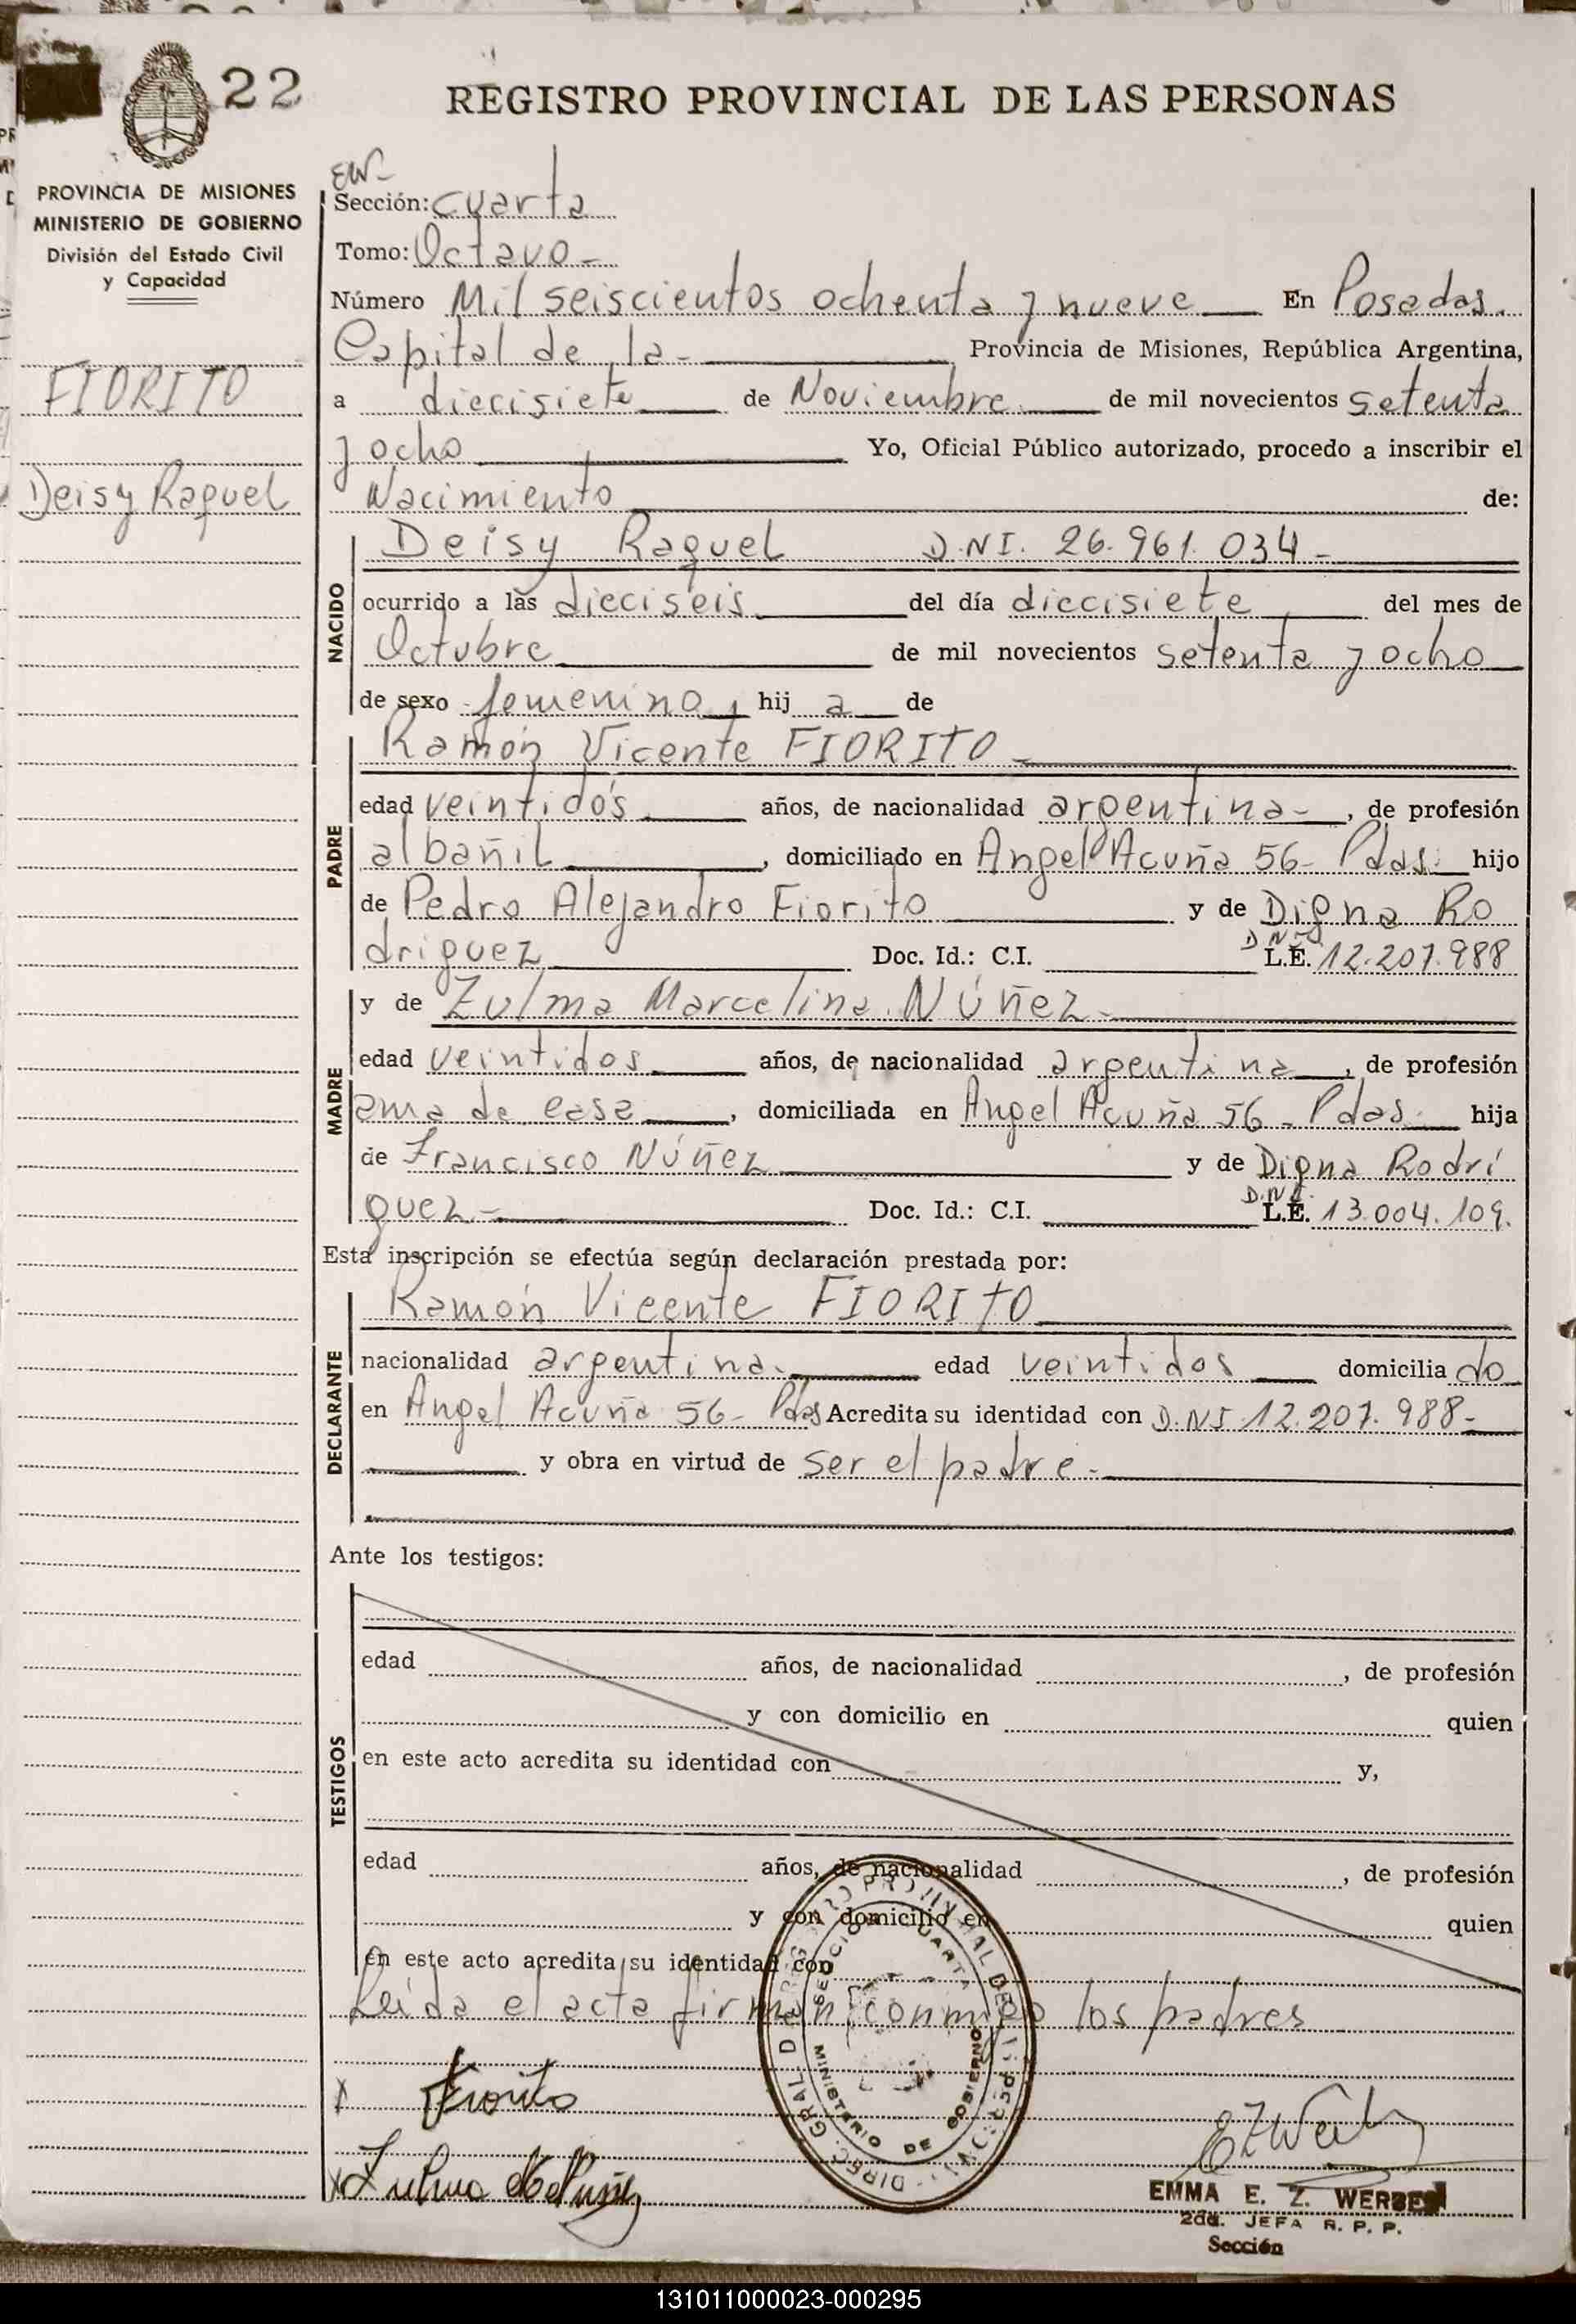 22
REGISTRO PROVINCIAL DE LAS PERSONAS
PROVINCIA DE MISIONES
MINISTERIO DE GOBIERNO
División del Estado Civil
y Capacidad
FIORITO
Deisy Raquel
Sección: cuarta
Tomo: Octavo -
Número Mil seiscientos ochenta y nueve En Posadas.
Capital de la - Provincia de Misiones, República Argentina,
a diecisiete de Noviembre de mil novecientos setenta
y ocho Yo, Oficial Público autorizado, procedo a inscribir el
Nacimiento de:
NACIDO
Deisy Raquel D.N.I. 26.961.034 -
ocurrido a las dieciseis del día diecisiete del mes de
Octubre de mil novecientos setenta y ocho
de sexo femenino, hij a de
PADRE
Ramón Vicente FIORITO -
edad veintidós años, de nacionalidad argentina -, de profesión
albañil, domiciliado en Angel Acuña 56 - Pdas. hijo
de Pedro Alejandro Fiorito y de Digna Ro
driguez Doc. Id.: C.I. D.N.I. L.E. 12.207.988
MADRE
y de Zulma Marcelina NÚÑEZ -
edad veintidos años, de nacionalidad argentina, de profesión
ama de casa, domiciliada en Angel Acuña 56 - Pdas. hija
de Francisco NÚÑEZ y de Digna Rodrí
guez - Doc. Id.: C.I. D.N.I. L.E. 13.004.109.
Esta inscripción se efectúa según declaración prestada por:
DECLARANTE
Ramón Vicente FIORITO
nacionalidad argentina. edad veintidos domicilia do
en Angel Acuña 56 - Pdas Acredita su identidad con D.N.I. 12.207.988 -
y obra en virtud de ser el padre -
Ante los testigos:
TESTIGOS
edad años, de nacionalidad , de profesión
y con domicilio en quien
en este acto acredita su identidad con y,
edad años, de nacionalidad , de profesión
y con domicilio en quien
en este acto acredita su identidad con
Leída el acta firman conmigo los padres
DIREC. GRAL. DE REGISTRO PROVINCIAL DE LAS PERSONAS
SECCION CUARTA
MINISTERIO DE GOBIERNO
x Fiorito
x Zulma M. Nuñez
EMMA E. Z. WERBES
2da. JEFA R. P. P.
Sección
131011000023-000295